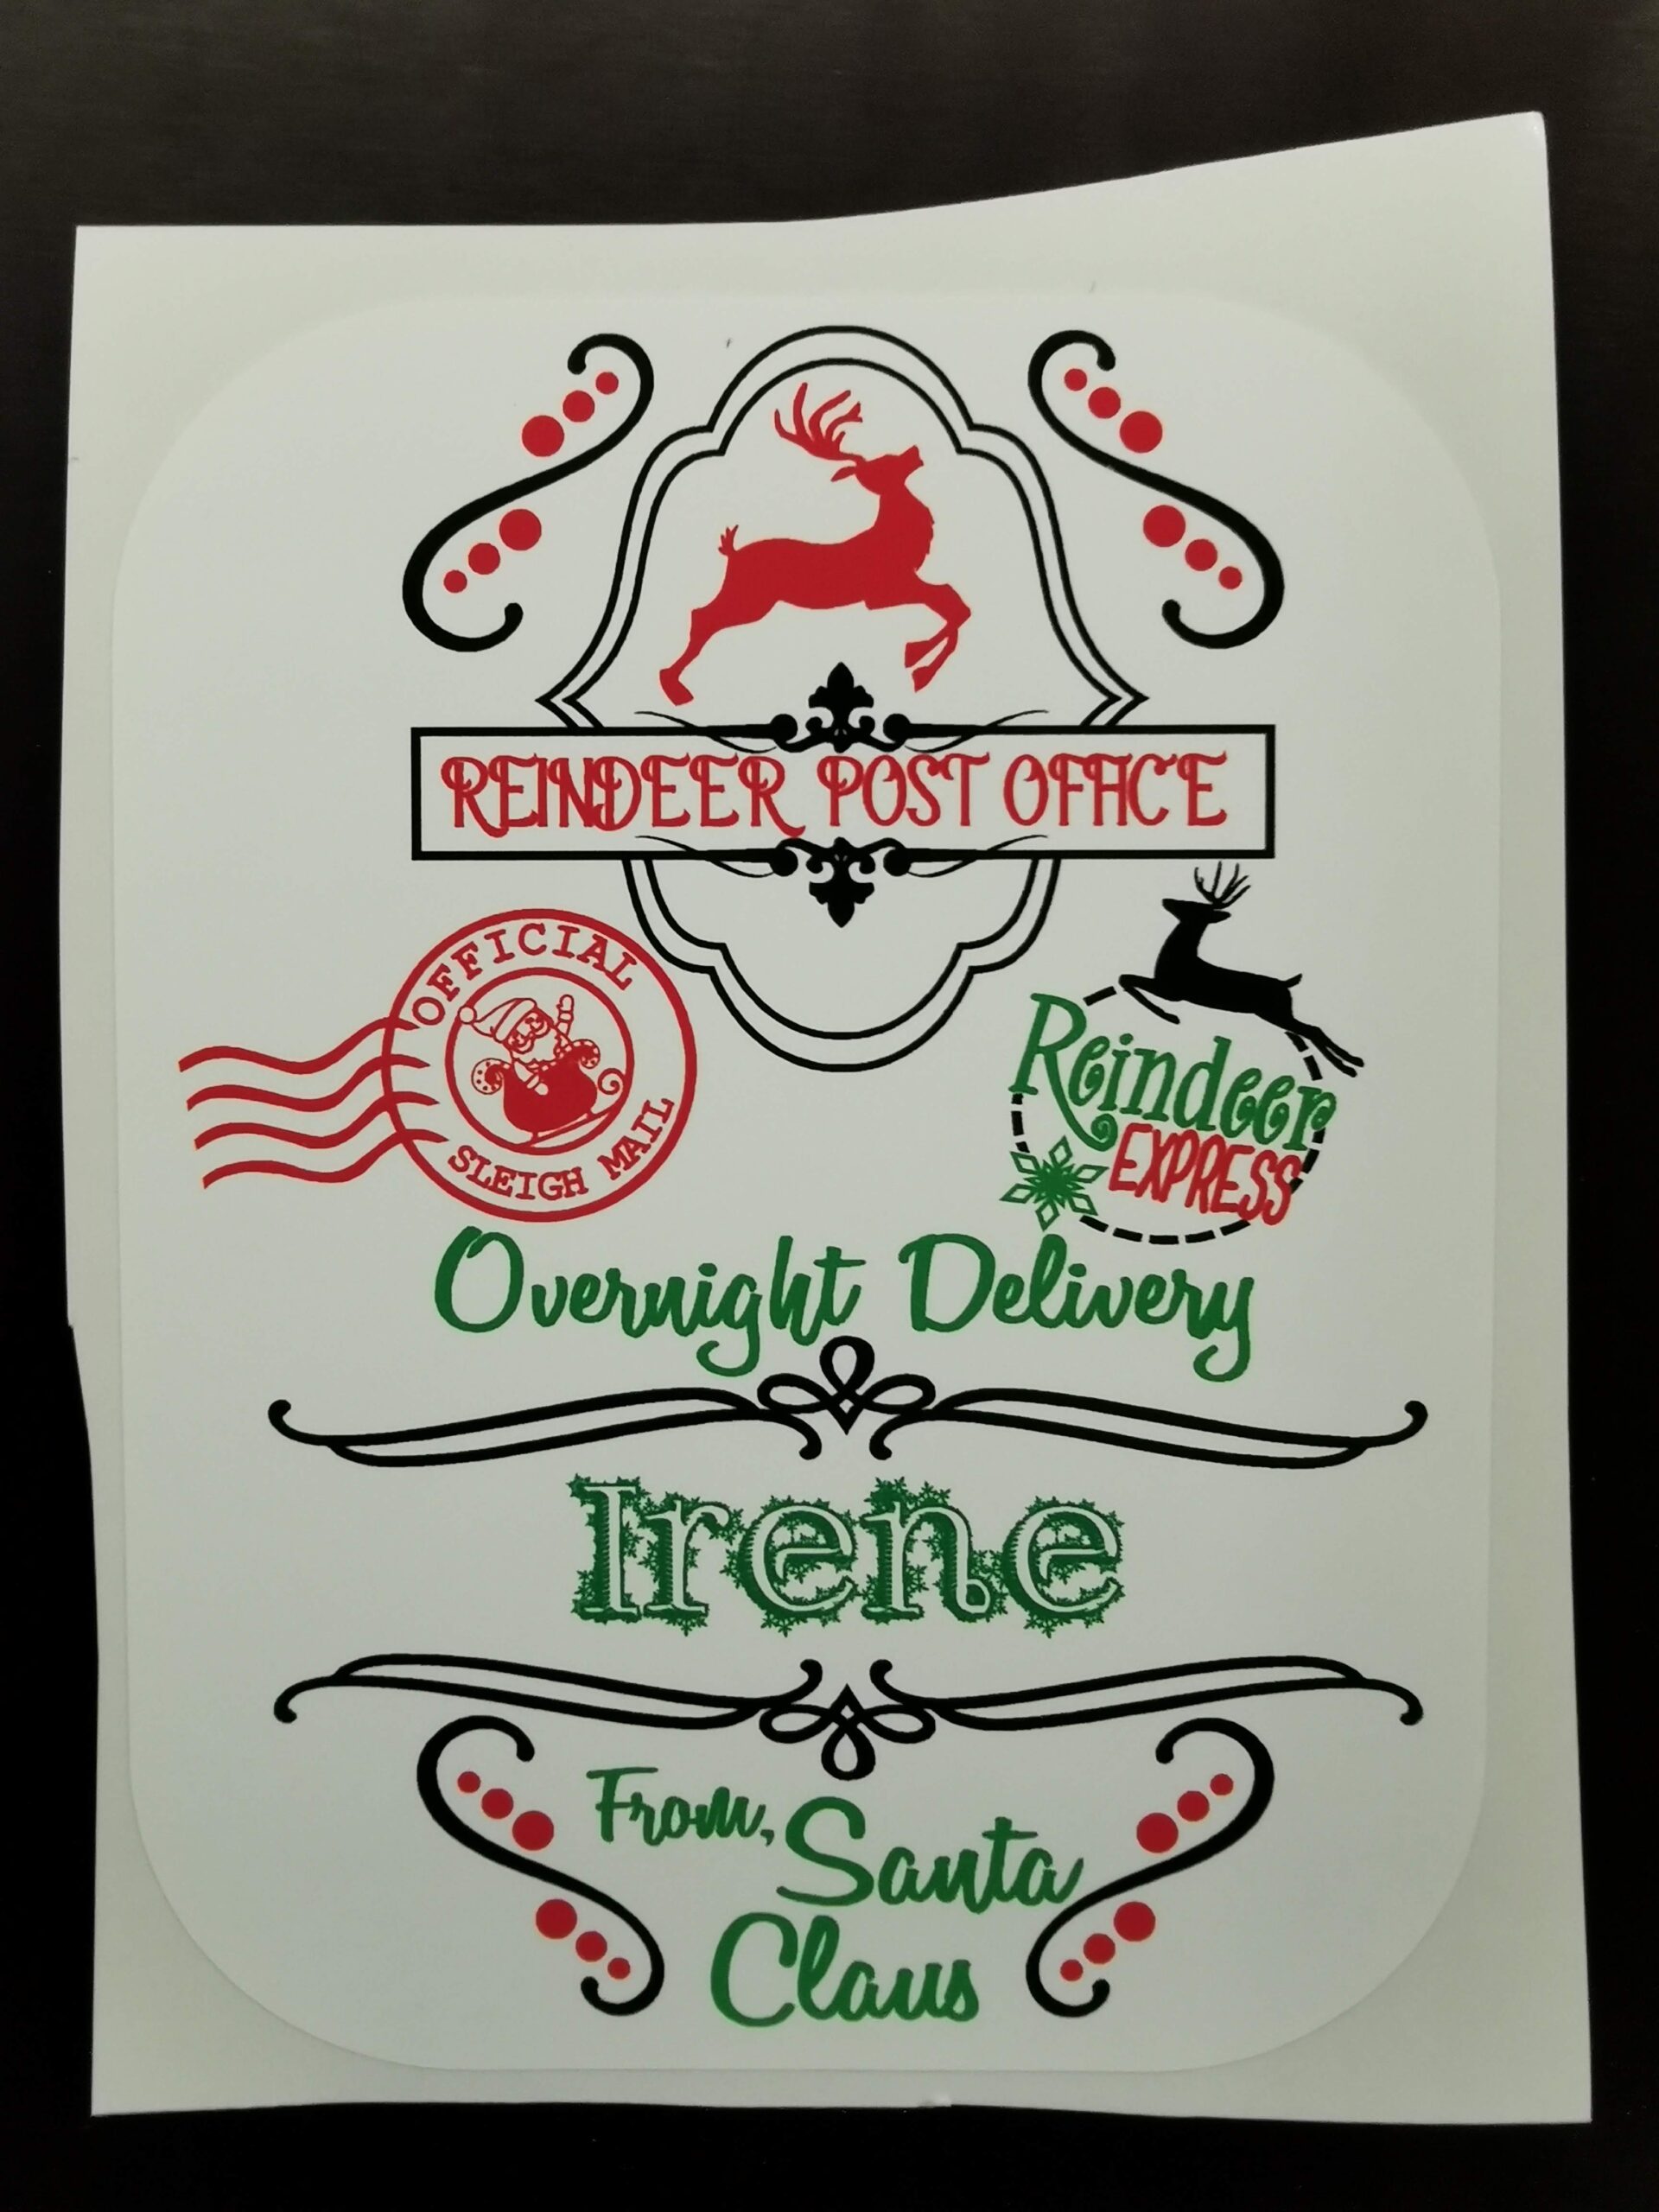 REINDEER POST OFFICE
OFFICIAL
SLEIGH MAIL
Reindeer
EXPRESS
Overnight Delivery
Irene
From, Santa
Claus